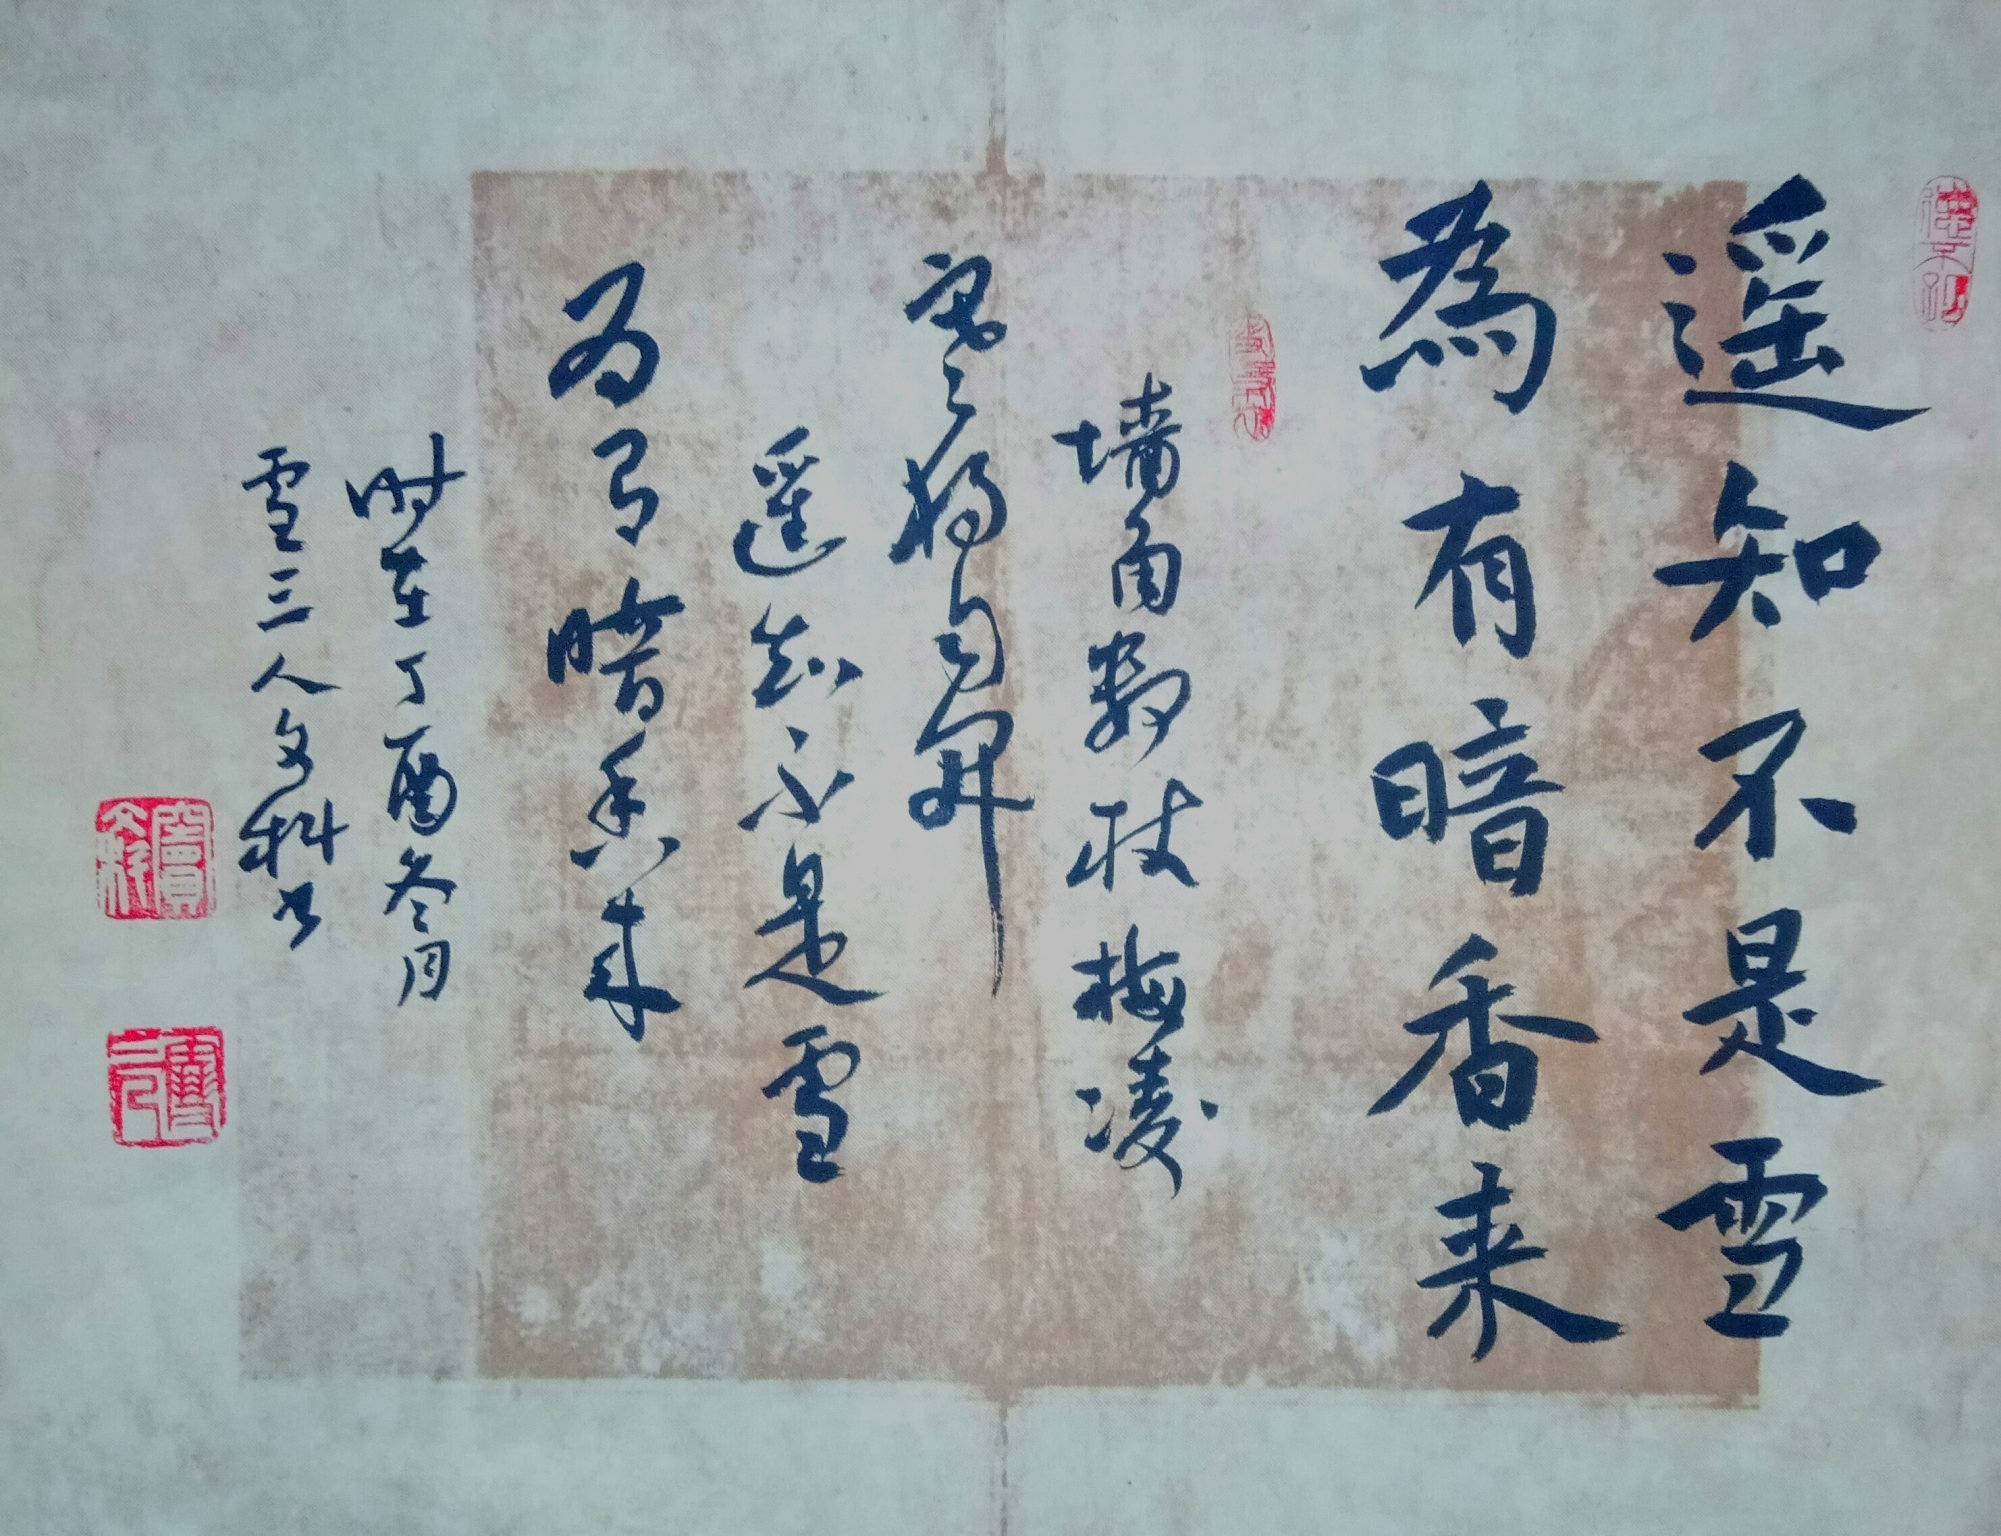 遥知不是雪
為有暗香来
墙角数枝梅凌
寒独自開
遥知不是雪
为有暗香来
时在丁酉冬月
雪三人文科书